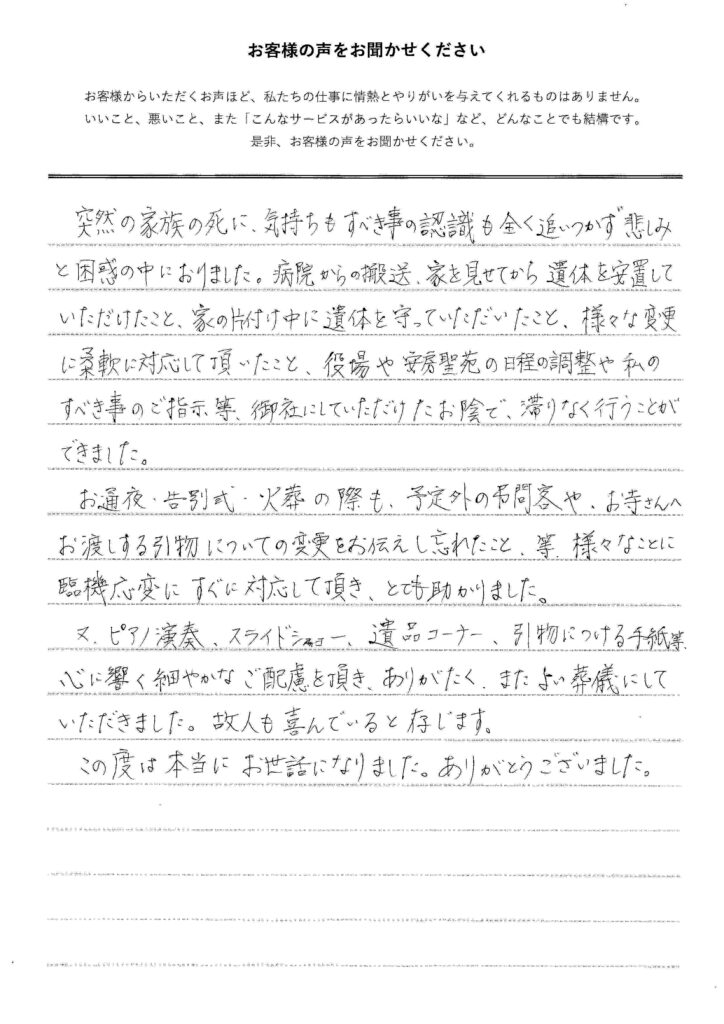 お客様の声をお聞かせください
お客様からいただくお声ほど、私たちの仕事に情熱とやりがいを与えてくれるものはありません。
いいこと、悪いこと、また「こんなサービスがあったらいいな」など、どんなことでも結構です。
是非、お客様の声をお聞かせください。
突然の家族の死に、気持ちもすべき事の認識も全く追いつかず悲しみ
と困惑の中におりました。病院からの搬送、家を見せてから遺体を安置して
いただけたこと、家の片付け中に遺体を守っていただいたこと、様々な変更
に柔軟に対応して頂いたこと、役場や安房聖苑の日程の調整や私の
すべき事のご指示等、御社にしていただけたお陰で、滞りなく行うことが
できました。
お通夜・告別式・火葬の際も、予定外の弔問客や、お寺さんへ
お渡しする引物についての変更をお伝えし忘れたこと、等、様々なことに
臨機応変にすぐに対応して頂き、とても助かりました。
又、ピアノ演奏、スライドショー、遺品コーナー、引物につける手紙等、
心に響く細やかなご配慮を頂き、ありがたく、またよい葬儀にして
いただきました。故人も喜んでいると存じます。
この度は本当にお世話になりました。ありがとうございました。